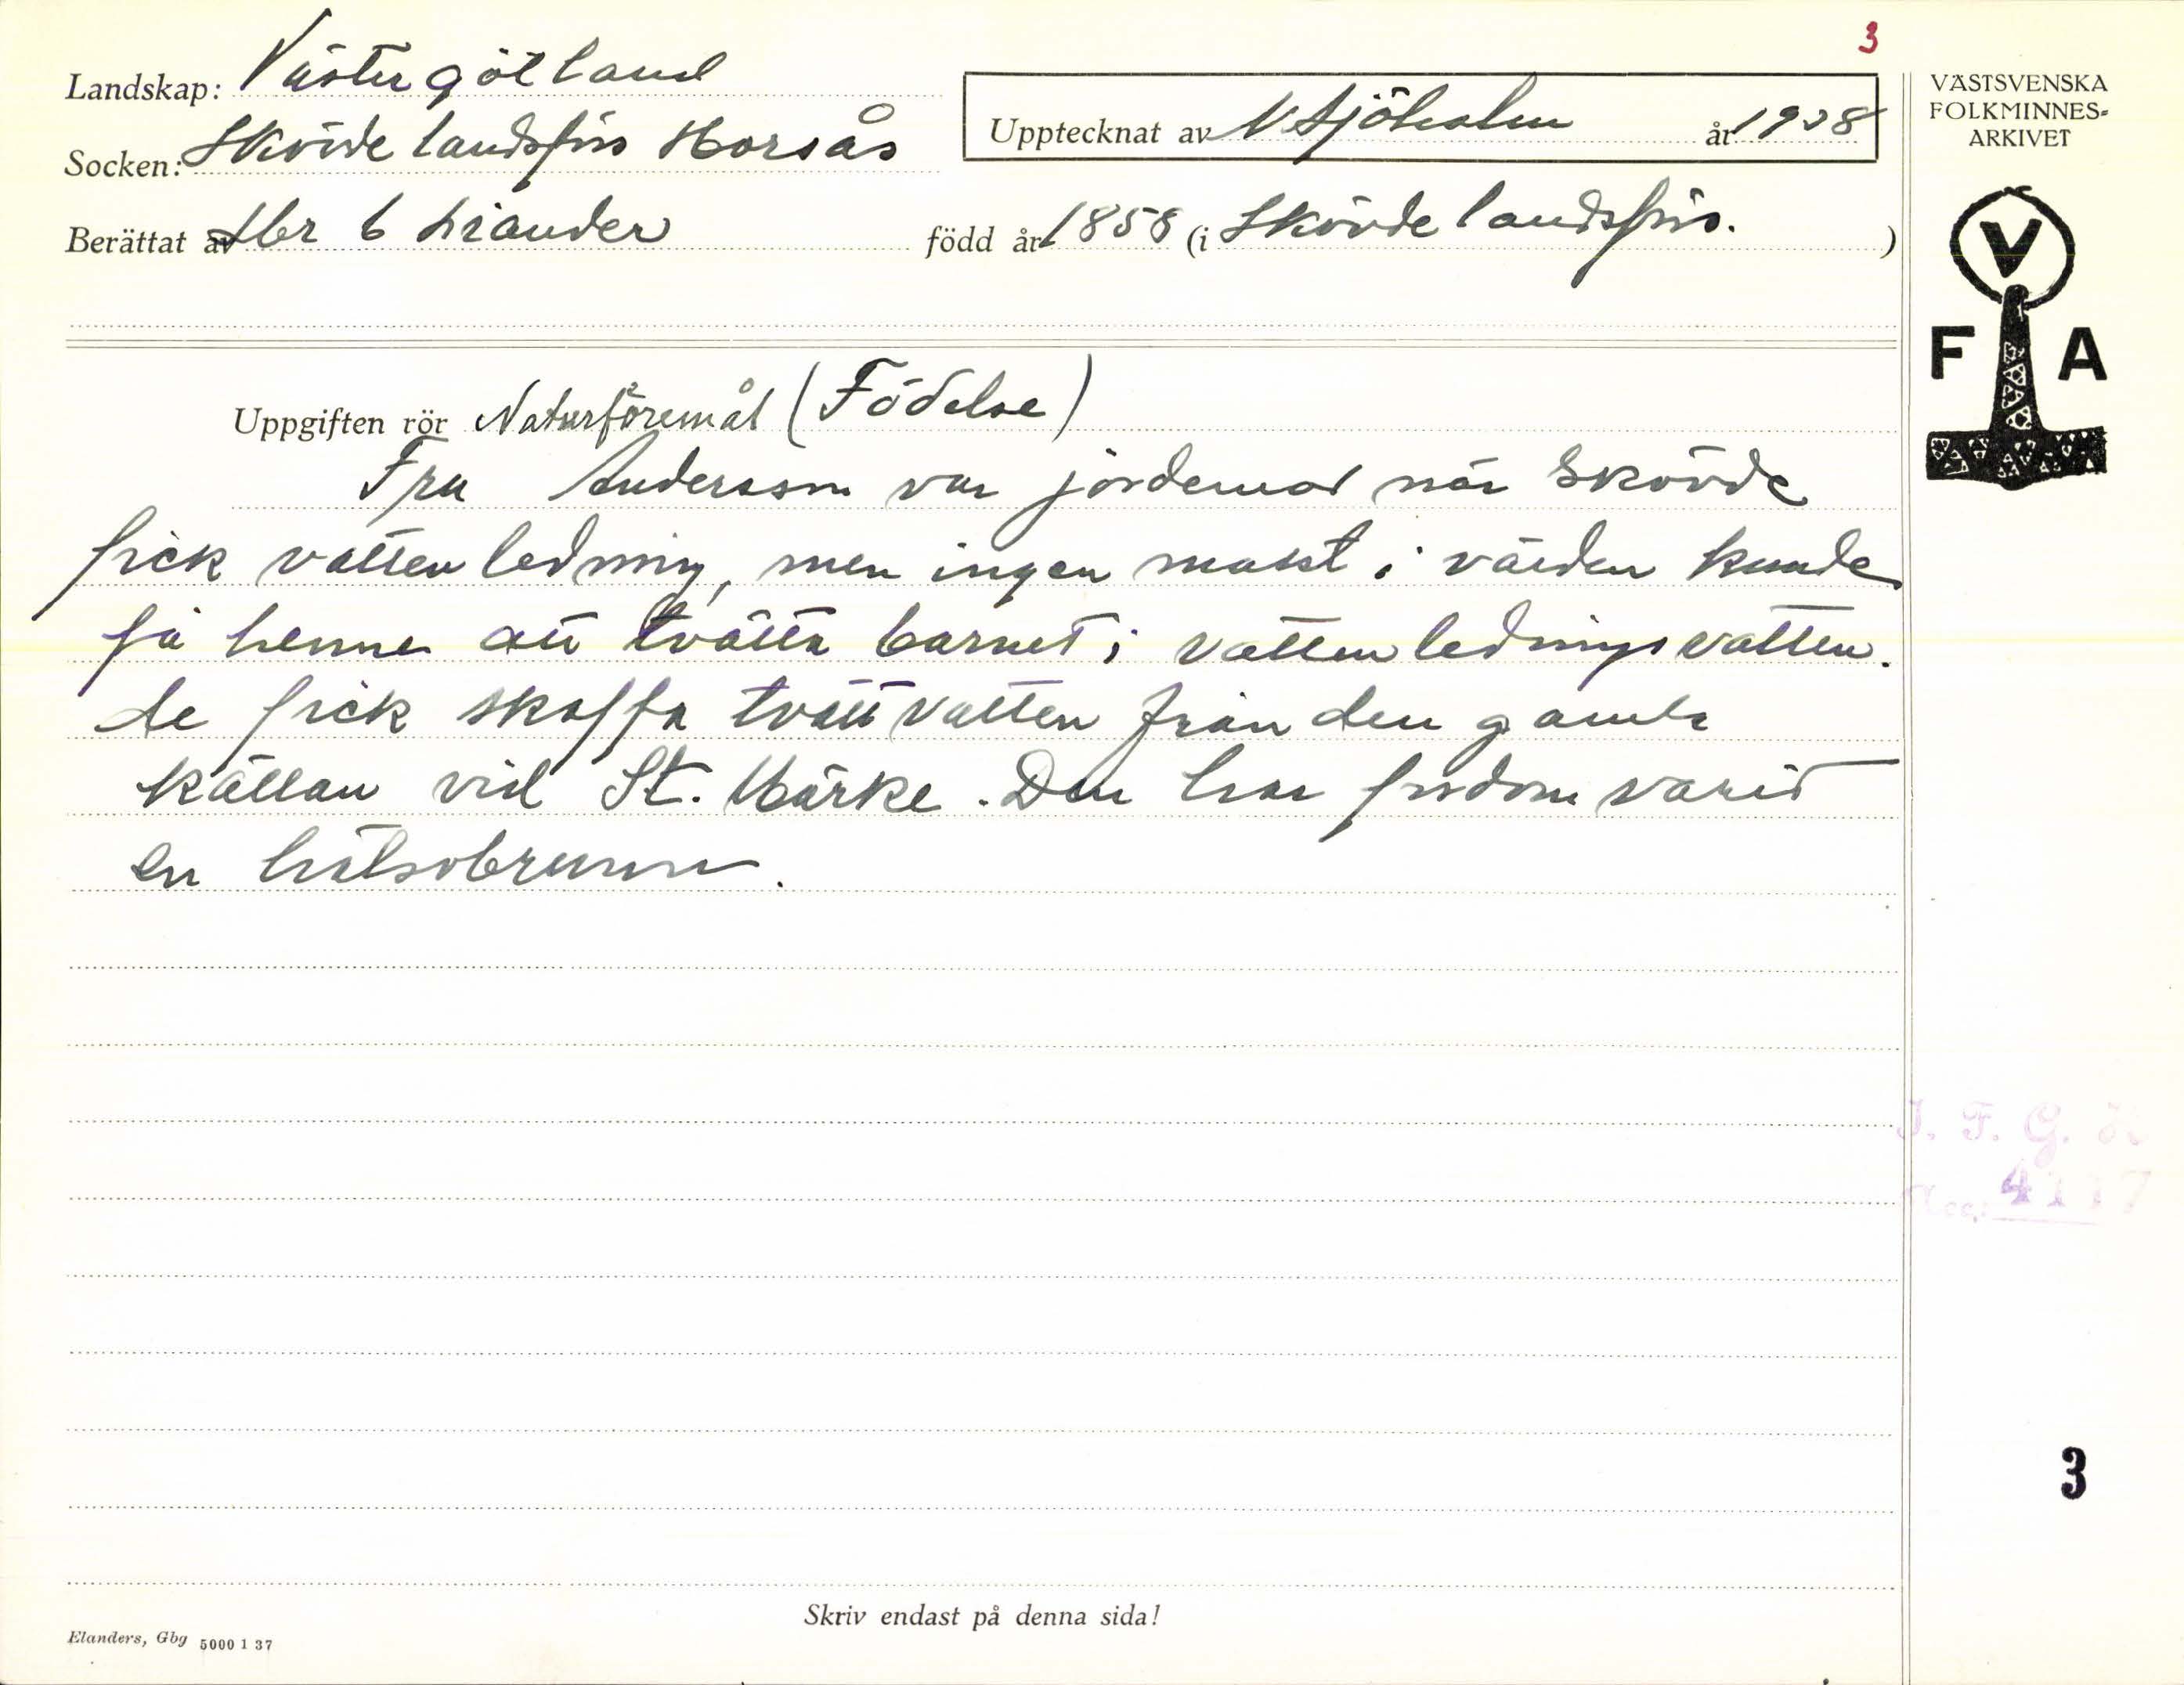 3
Landskap: Västergötland
Socken: Skövde landsförs Horsås
Upptecknat av N Sjöholm år 1938
Berättat av Hbr 6 Liander född år 1858 (i Skövde landsförs.)
VÄSTSVENSKA
FOLKMINNES-
ARKIVET
V
F A
Uppgiften rör Naturföremål (Födelse)
Fru Andersson var jordemor när Skövde
fick vattenledning, men ingen makt i världen kunde
få henne att tvätta barnet i vattenledningsvatten.
de fick skaffa tvättvatten från den gamla
källan vid St. Märke. Den har fordom varit
en hälsobrunn.
I. F. G. H
Acc: 4117
3
Skriv endast på denna sida!
Elanders, Gbg 5000 1 37